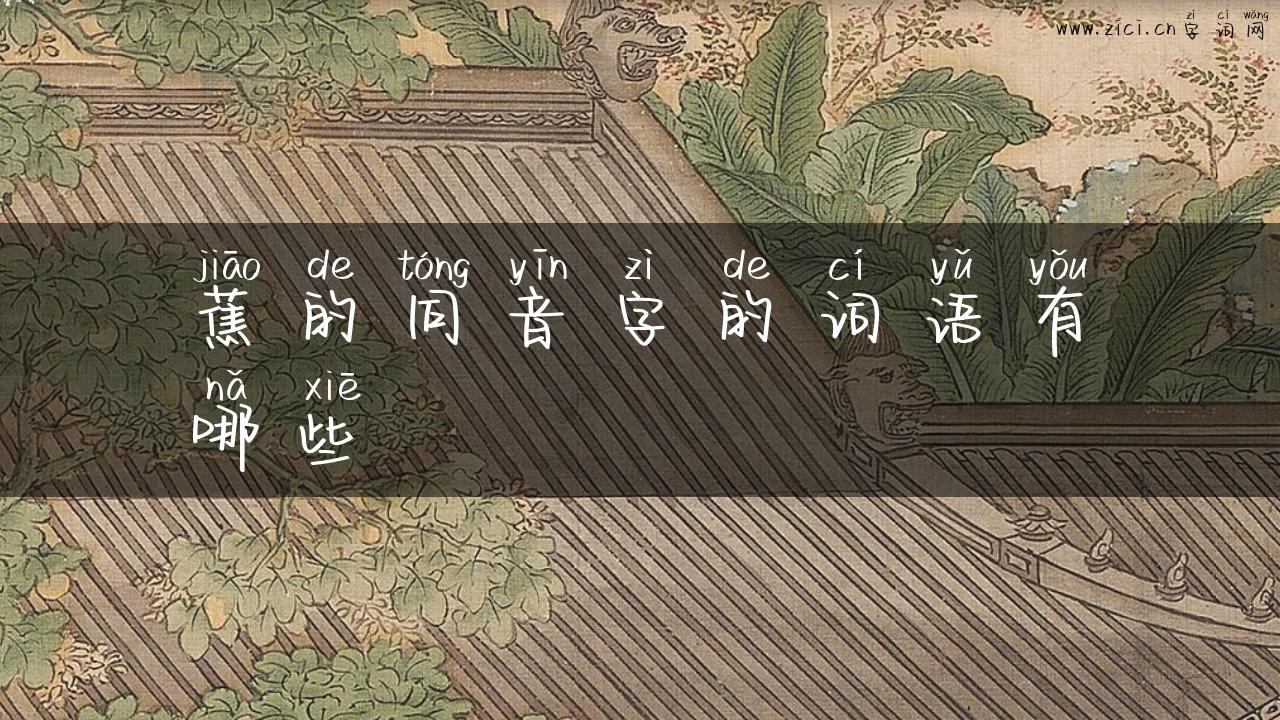 zì cí wǎng
www.zici.cn 字词网
jiāo de tóng yīn zì de cí yǔ yǒu
蕉的同音字的词语有
nǎ xiē
哪些